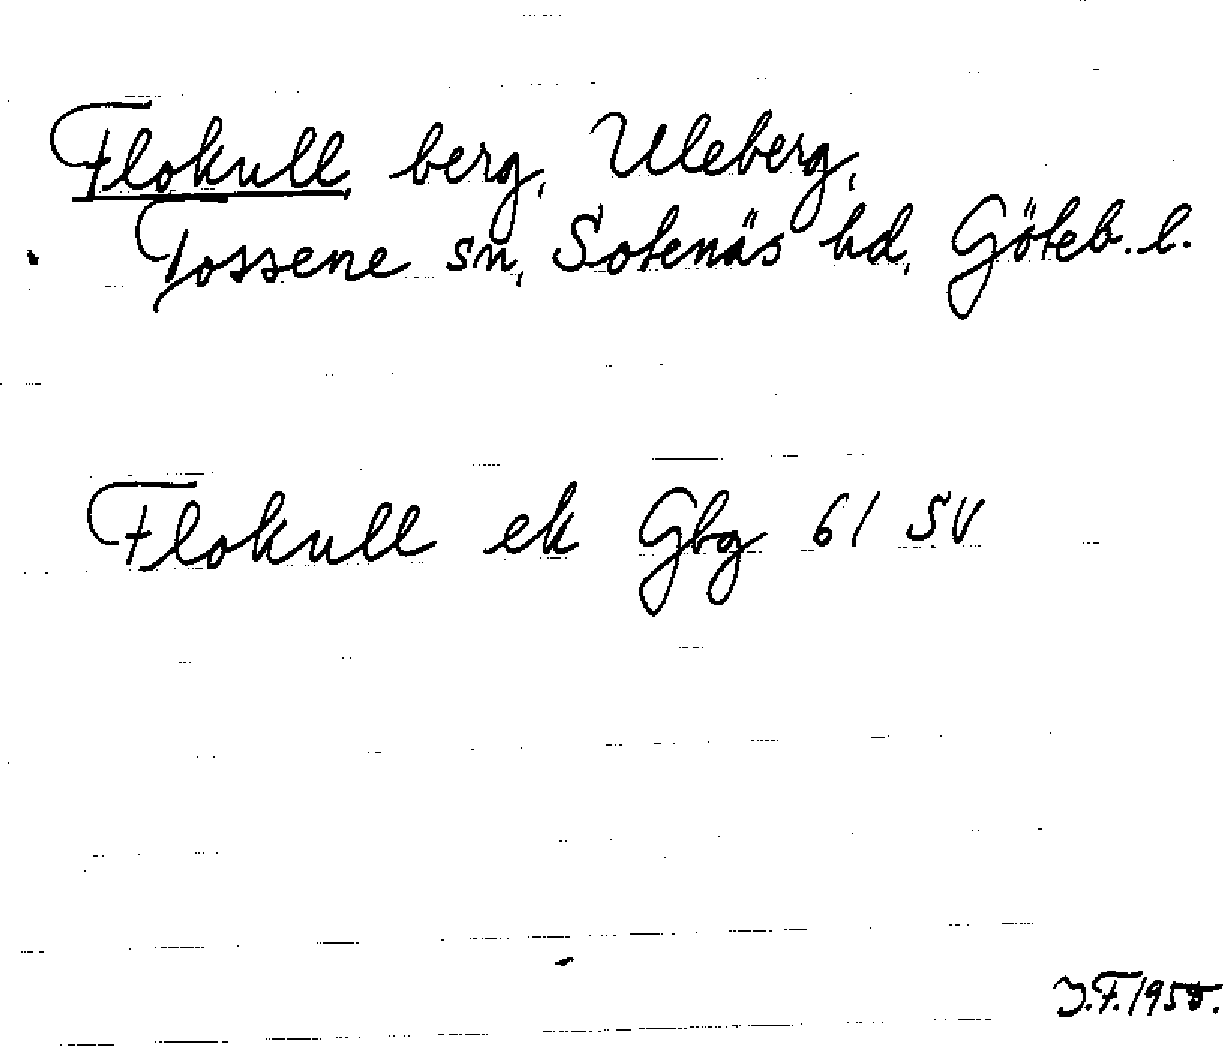 Flokull, berg, Uleberg,
Tossene sn, Sotenäs hd, Göteb. l.
Flokull ek Gbg 61 SV
J.F. 1955.